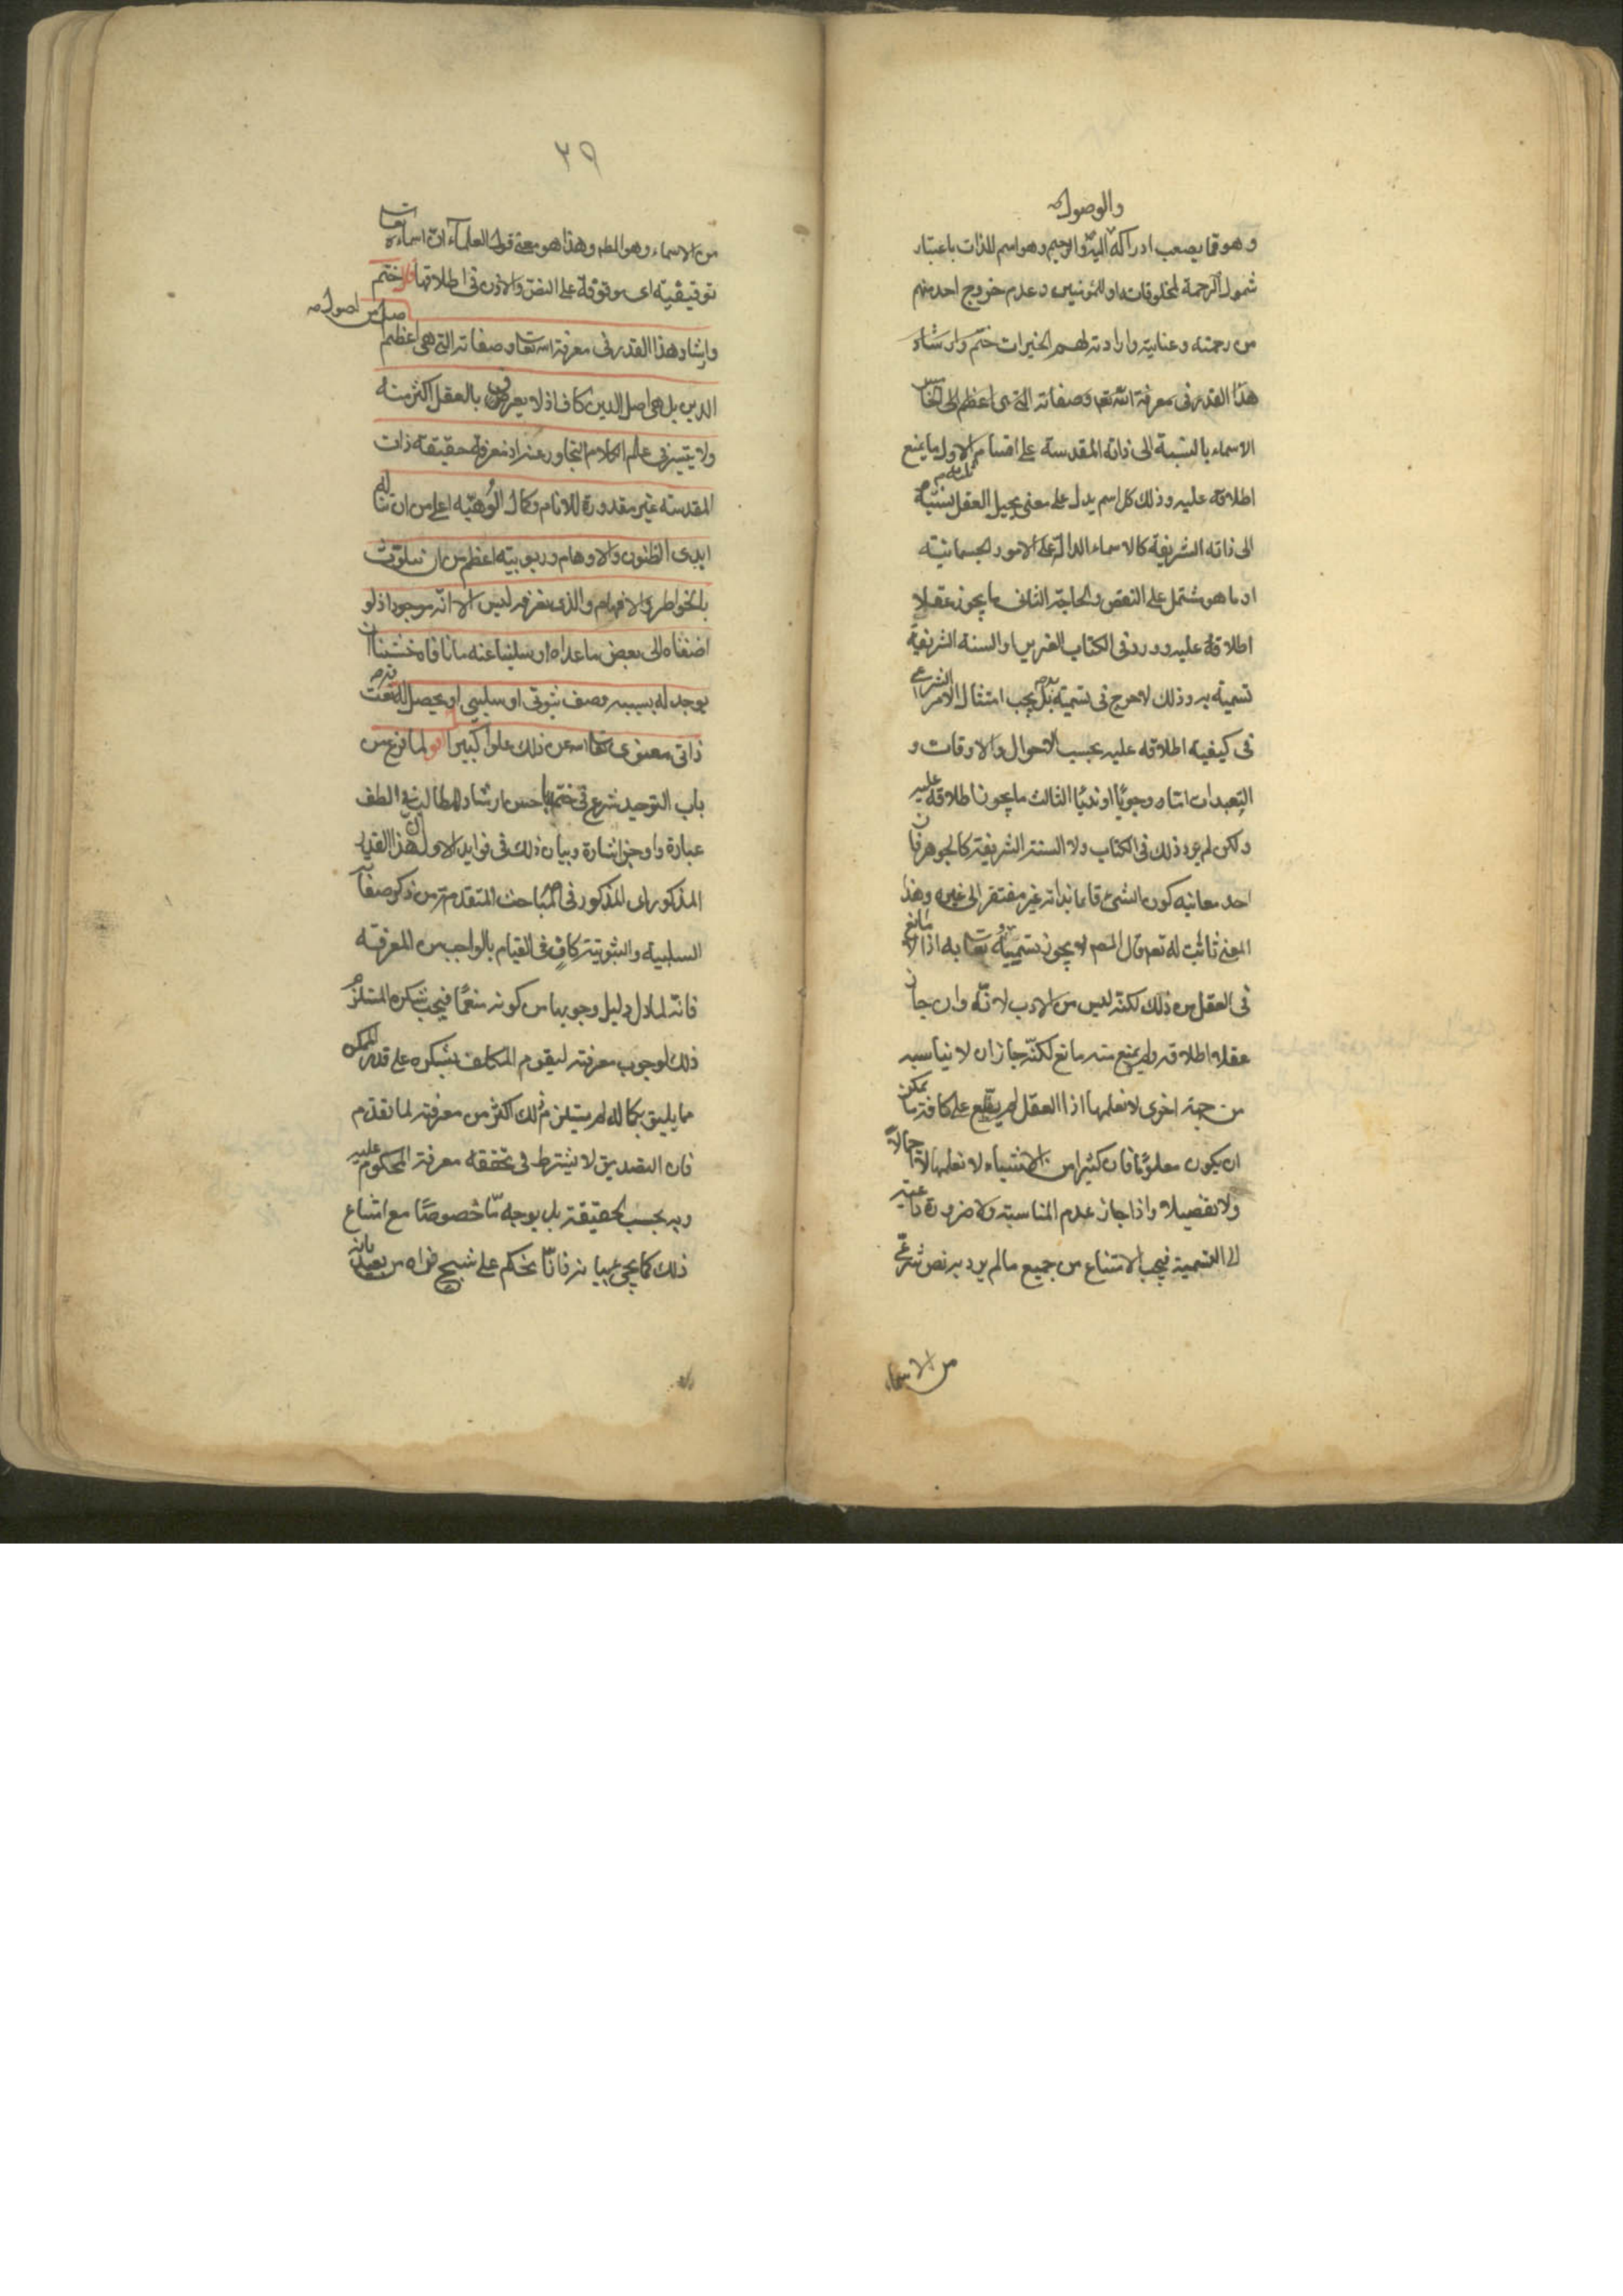 والوصول
وهو مما يصعب ادراكه اليه والرحيم وهو اسم للذات باعتبار
شمول الرحمة لمخلوقاته او للمؤمنين وعدم خروج احد منهم
من رحمته وعنايته وارادته لهم الخيرات ختم وارشاد
هذا القدر فى معرفة الله تعم وصفاته التى هى اعظم الى
الاسماء بالنسبة الى ذاته المقدسة على اقسام الاول ما يمنع
اطلاقه عليه وذلك كل اسم يدل على معنى يحيل العقل نسبته
الى ذاته الشريفة كالاسماء الدالة على الامور الجسمانية
او ما هو مشتمل على النقص والحاجة الثانى ما يجوز عقلا
اطلاقه عليه وورد فى الكتاب العزيز او السنة الشريفة
تسميته به وذلك لا حرج فى تسميته به بل يجب امتثال الامر الشرعى
فى كيفية اطلاقه عليه بحسب الاحوال والاوقات و
التعبدات اما وجوبًا او ندبًا الثالث ما يجوز اطلاقه عليه
ولكن لم يرد ذلك فى الكتاب ولا السنة الشريفة كالجوهر فان
احد معانيه كون الشئ قايما بذاته غير مفتقر الى غيره وهذا
المعنى ثابت له تعم قال المصم لا يجوز تسميته تعا به اذ لا مانع
فى العقل من ذلك لكنه ليس من الادب لانه وان جاز
عقلا اطلاقه ولم يمنع منه مانع لكنه جاز ان لا يناسبه
من جهة اخرى لا نعلمها اذ العقل لم يطلع على كافة ما يمكن
ان يكون معلومًا فان كثيرا من الاشياء لا نعلمها لا اجمالاً
ولا تفصيلا واذا جاز عدم المناسبة ولا ضرورة داعية
الى التسمية فيجب الامتناع من جميع ما لم يرد به نص شرعى
من الاسماء
٣٩
من الاسماء وهو المطم وهذا هو معنى قول العلماء ان اسماءه تعا
توقيفية اى موقوفة على النص والاذن فى اطلاقها قال ختم
وارشاد هذا القدر فى معرفة الله تعا وصفاته التى هى اعظم اصل من اصول
الدين بل هى اصل الدين كاف اذ لا يعرف بالعقل اكثر منه
ولا يتيسر فى علم الكلام التجاوز عنه اذ معرفة حقيقة ذات
المقدسة غير مقدورة للانام وكمال الوهيّه اعلى من ان تناله
ايدى الظنون والاوهام وربوبيته اعظم من ان تتلوث
بالخواطر والافهام والذى نعرفه ليس الا انه موجود اذ لو
اضفناه الى بعض ما عداه او سلبنا عنه ما نافاه خشينا ان
يوجد له بسببه وصف ثبوتى او سلبى او يحصل له نعت
ذاتى معنوى تعا الله عن ذلك علوًا كبيرا اقول لما فرغ من
باب التوحيد شرع فى ختمه باحسن ارشاد للطالب فى الطف
عبارة واوجز اشارة وبيان ذلك فى فوايد الاولى ان هذا القدر
المذكور اى المذكور فى المباحث المتقدمة من ذكر صفاته
السلبية والثبوتية كافٍ فى القيام بالواجب من المعرفة
فانه لما دل دليل وجوبها من كونه منعمًا فيجب شكره المستلزم
ذلك لوجوب معرفته ليقوم المكلف بشكره على قدر الممكن
مما يليق بكماله لم يستلزم ذلك اكثر من معرفته لما تقدم
فان التصديق لا يشترط فى تحققه معرفة المحكوم عليه
وبه بحسب الحقيقة بل بوجه ما خصوصًا مع امتناع
ذلك كما يجئ بيانه فانا نحكم على شبح نراه من بعيد بانه